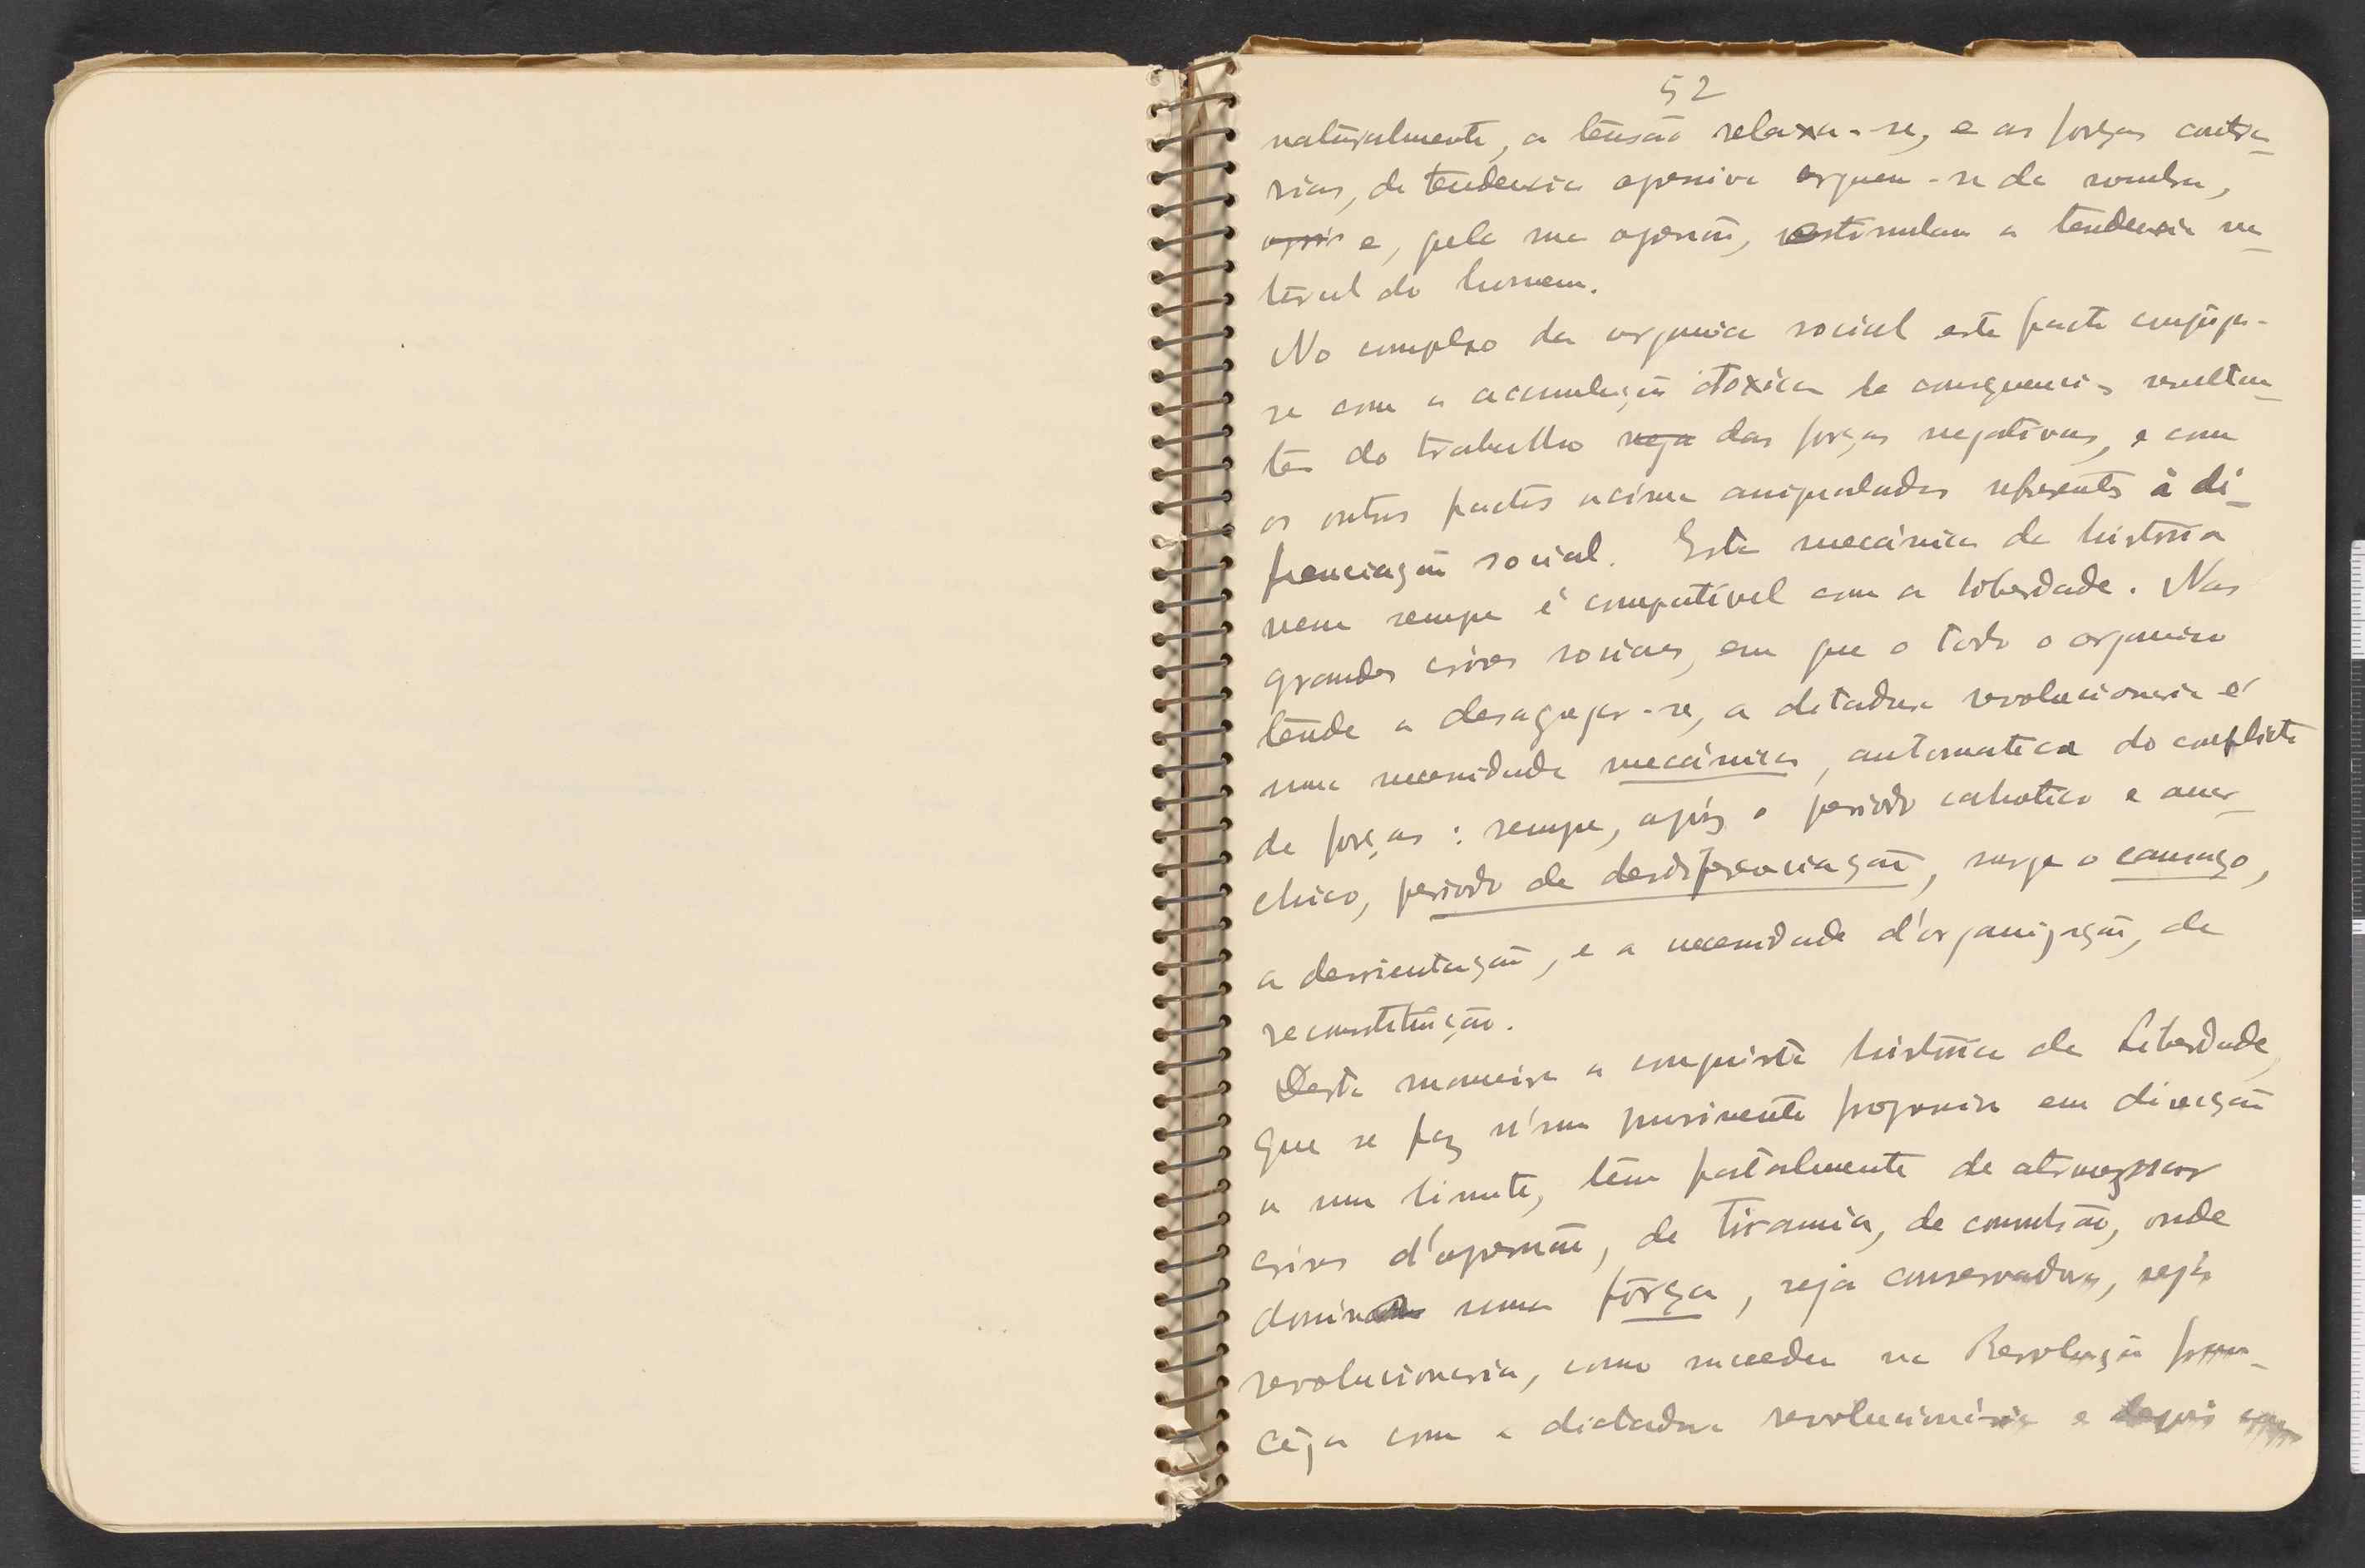 52
naturalmente, a tensão relaxa-se, e as forças contra-
rias, de tendencia opressiva erguem-se da sombra,
e, pela sua opressão, estimulam a tendencia na-
tural do homem.
No complexo da organica social este facto conjuga-
se com a acumulação toxica de consequencias resultan-
tes do trabalho das forças negativas, e com
os outros factos acima assinalados referentes à di-
ferenciação social. Esta mecânica da história
nem sempre é compativel com a liberdade. Nas
grandes crises sociaes, em que o todo o organico
tende a desagregar-se, a ditadura revolucionaria é
uma necessidade mecânica, automatica do conflicto
de forças: sempre, após o periodo cahotico e anar-
chico, periodo de desdiferenciação, surge o cansaço,
a desorientação, e a necessidade d'organização, de
reconstituição.
Desta maneira a conquista histórica da Liberdade,
que se faz n'um movimento progressivo em direcção
a um limite, tem fatalmente de atravessar
crises d'opressão, de tirania, de convulsão, onde
domina uma fôrça, seja conservadora, seja
revolucionaria, como sucedeu na Revolução fran-
cêza com a dictadura revolucionária e depois